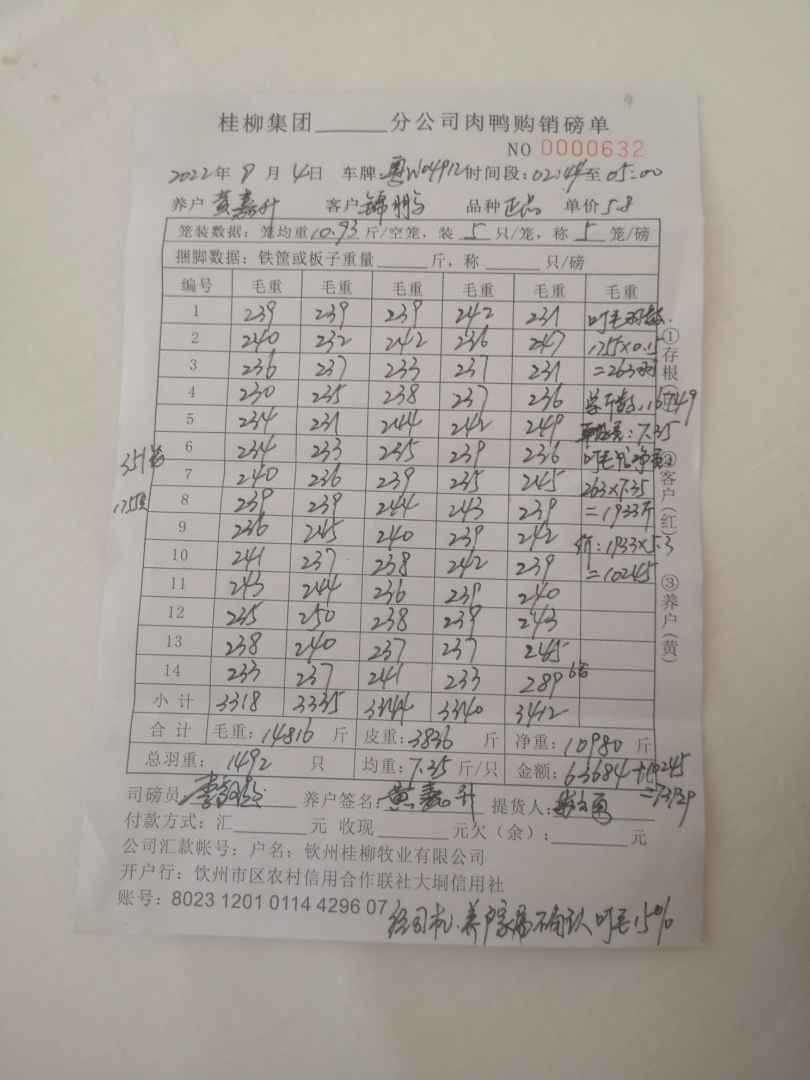 桂柳集团______分公司肉鸭购销磅单
NO 0000632
2022年 8 月 4日 车牌: 04912 时间段: 02:44至05:00
养户 黄嘉升 客户 锦鹏 品种 正品 单价 5.8
笼装数据: 笼均重10.93斤/空笼, 装 5 只/笼, 称 5 笼/磅
捆脚数据: 铁筐或板子重量____斤, 称____只/磅
编号 毛重 毛重 毛重 毛重 毛重 毛重
1 239 239 239 242 231 叮毛羽数:
2 240 232 242 236 247 1755×0.15
3 236 237 233 237 231 =263羽
4 230 235 238 237 236
5 234 231 244 242 249 : 7.35
6 234 233 235 239 236 叮毛
7 240 236 239 235 245 263×7.35
8 239 239 244 243 239 =1933斤
9 236 245 240 239 242 : 1933×5.3
10 241 237 238 242 239 =10245
11 243 244 236 239 240
12 235 250 238 239 243
13 238 240 237 237 245
14 233 237 241 233 289 6笼
小计 3318 3335 3344 3340 3412
合计 毛重: 14816 斤 皮重: 3836 斤 净重: 10980 斤
总羽重: 1492 只 均重: 7.35 斤/只 金额: 63684+10245
=73929
司磅员 养户签名: 黄嘉升 提货人:
付款方式: 汇______元 收现______元欠(余):______元
公司汇款帐号: 户名: 钦州桂柳牧业有限公司
开户行: 钦州市区农村信用合作联社大垌信用社
账号: 8023 1201 0114 4296 07
经司机、养户家属不确认叮毛15%
351笼
①存根
②客户(红)
③养户(黄)